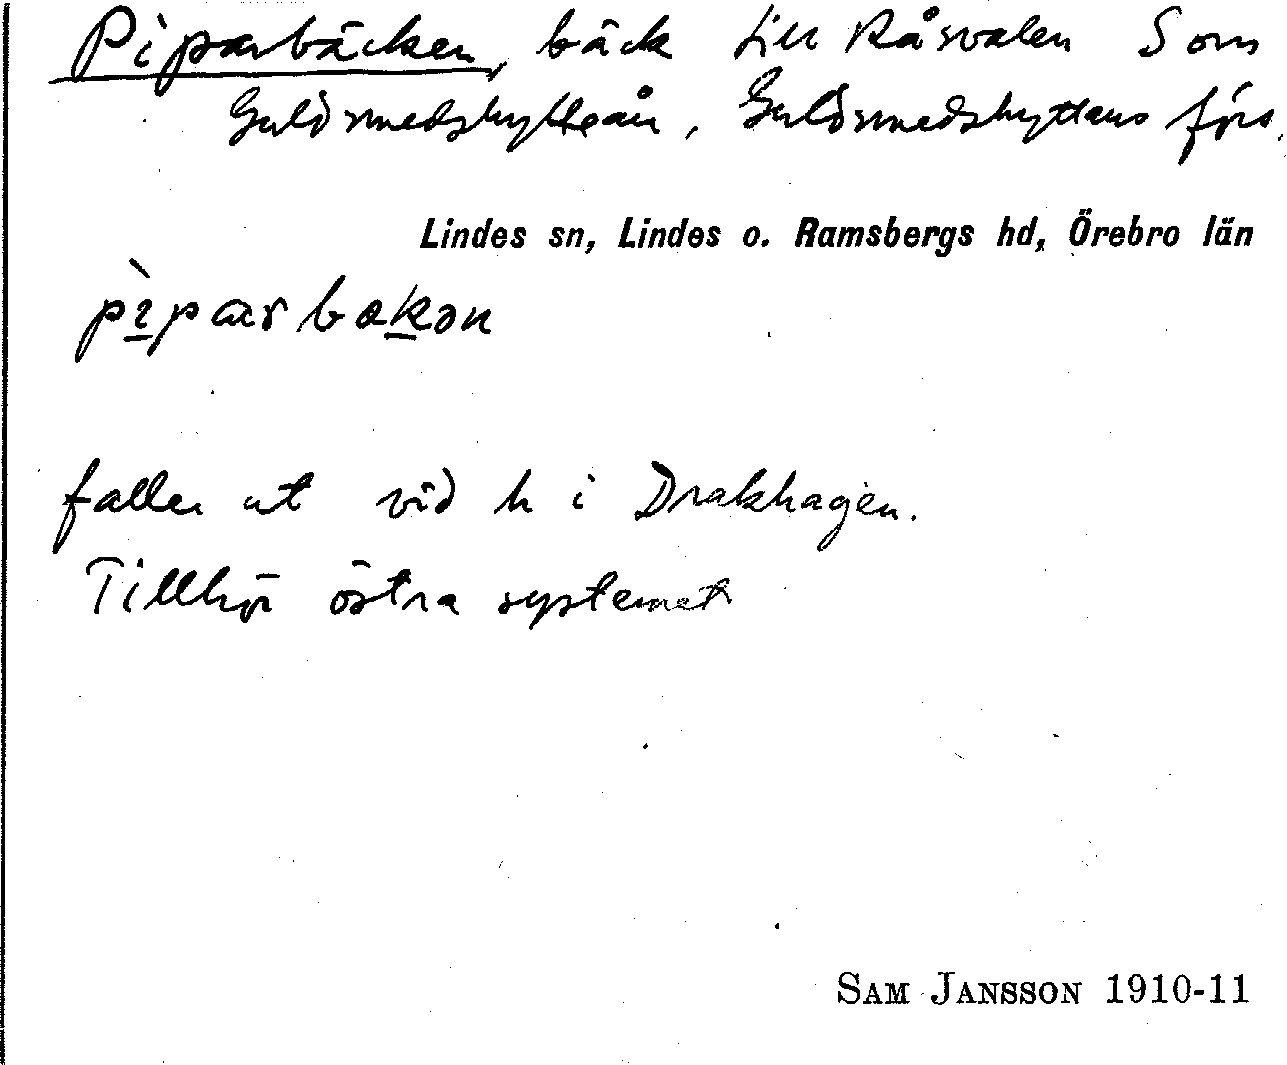 Piparbäcken, bäck till Råsvalen S om
Guldsmedshytteån, Guldsmedshyttans förs.
Lindes sn, Lindes o. Ramsbergs hd, Örebro län
pìparbækən
faller ut vid h i Drakhagen.
Tillhör östra systemet
SAM JANSSON 1910-11